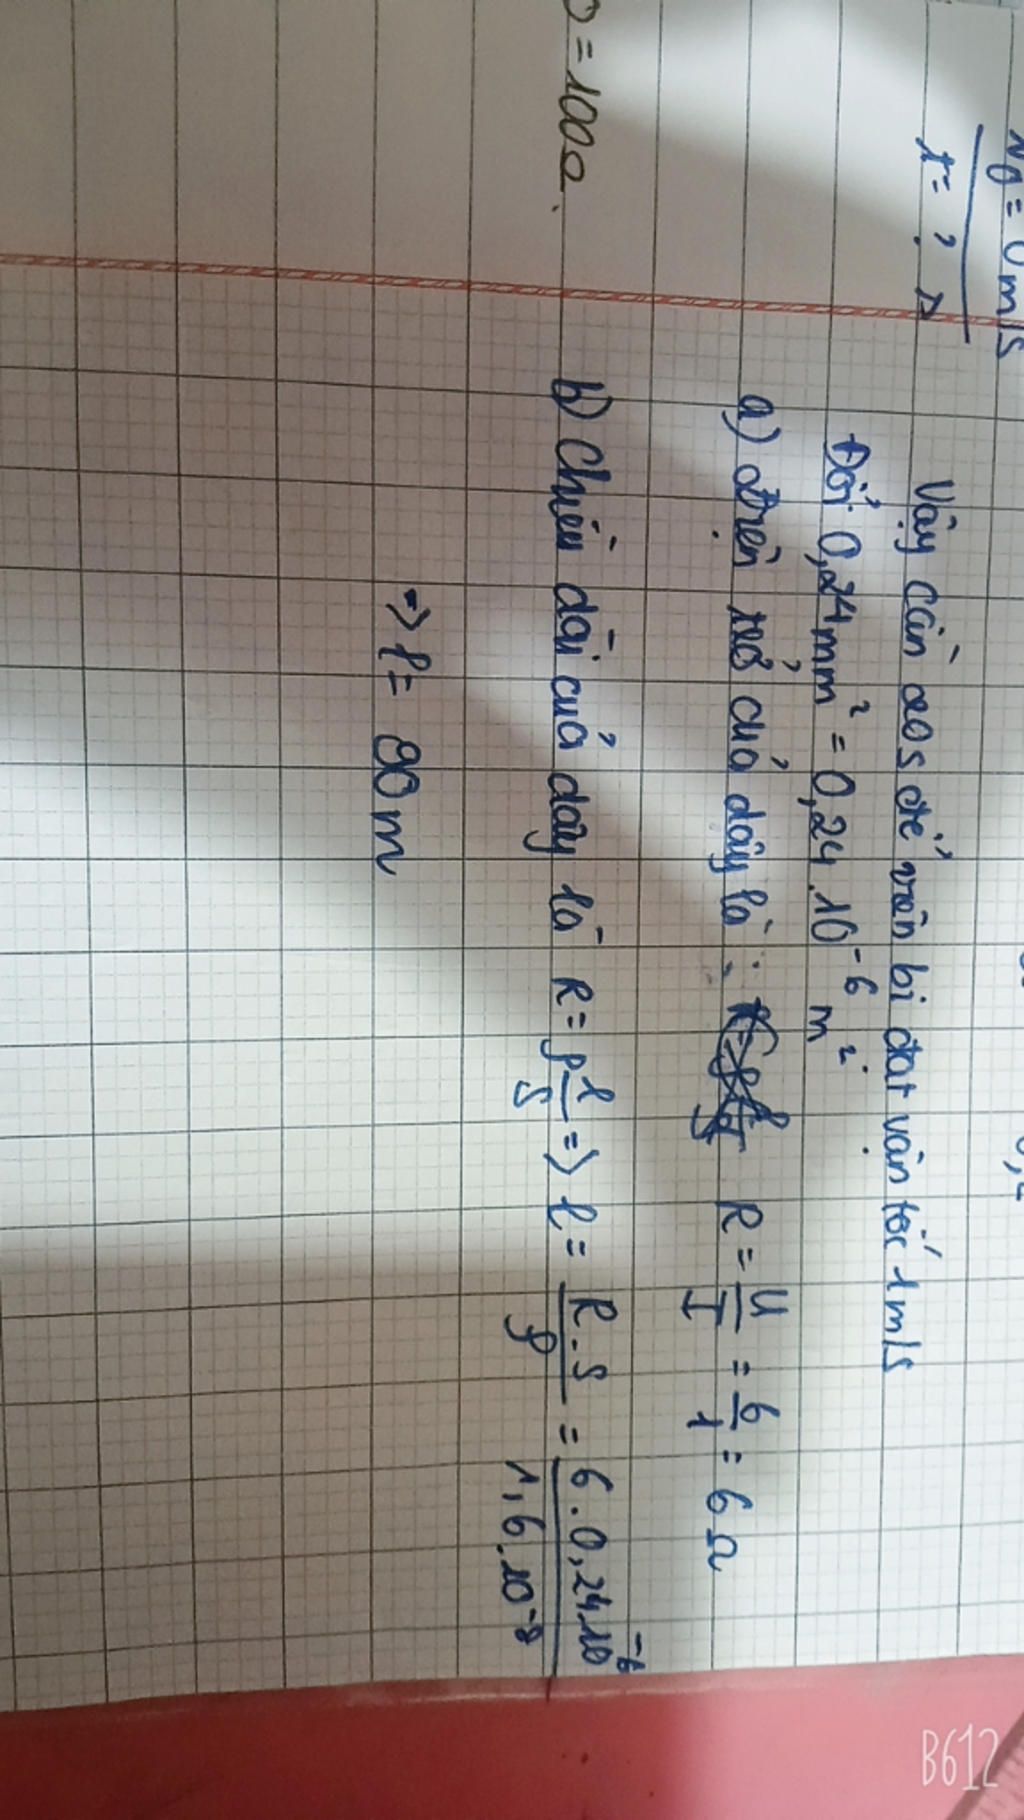 = 0 m/s
t = ? s
Vậy cần 20s để viên bi đạt vận tốc 1m/s
Đổi 0,24mm² = 0,24.10⁻⁶ m²
a) Điện trở của dây là : R = U/I = 6/1 = 6Ω
= 100Ω.
b) Chiều dài của dây là R = ρ l/S => l = R.S/ρ = 6.0,24.10⁻⁶/1,6.10⁻⁸
=> l = 90m
B612